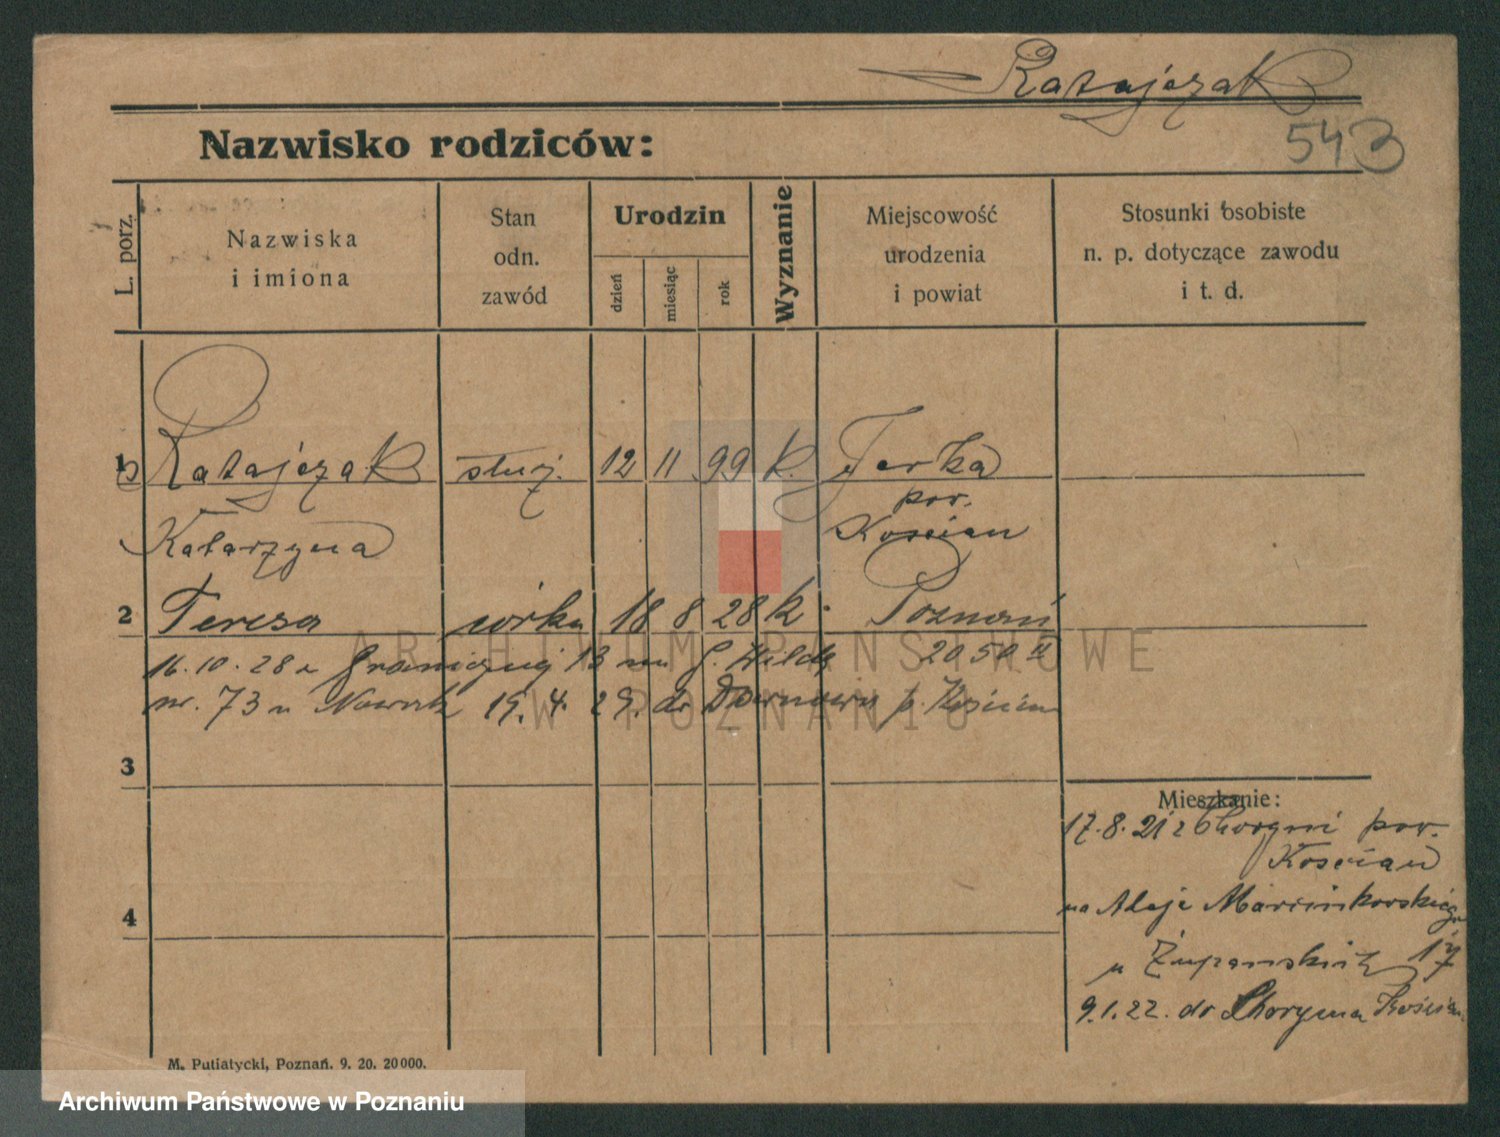 Ratajczak
Nazwisko rodziców:
543
L. porz.
Nazwiska
i imiona
Stan
odn.
zawód
Urodzin
dzień
miesiąc
rok
Wyznanie
Miejscowość
urodzenia
i powiat
Stosunki osobiste
n. p. dotyczące zawodu
i t. d.
1 Ratajczak służ. 12 11 99 k. Jerka
pow.
Katarzyna Kościan
2 Teresa córka 18 8 28 k. Poznań
16.10.28 u Granicznej 13 G. Wildą 2050 II
nr. 73 u Nowak 19.4.29. do p. Kościan
3
Mieszkanie:
17.8.21 z Choryni pow.
Kościan
na Aleje Marcinkowskiego
u Żupańskich 17
9.1.22. do Chorynia Kościan
4
M. Putiatycki, Poznań. 9. 20. 20000.
ARCHIWUM PAŃSTWOWE
W POZNANIU
Archiwum Państwowe w Poznaniu